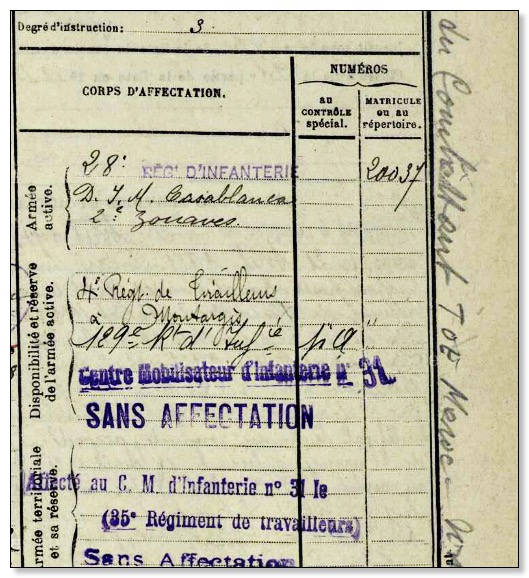 Degré d'instruction: 3
CORPS D'AFFECTATION.
NUMÉROS
au
CONTRÔLE
spécial.
MATRICULE
ou au
répertoire.
Armée
active.
28e RÉGt D'INFANTERIE
20037
D. I. M. Casablanca
2e Zouaves
Disponibilité et réserve
de l'armée active.
4e Régt de Tirailleurs
à Montargis
189e Rt d'Infie
Centre Mobilisateur d'Infanterie n° 31.
SANS AFFECTATION
Armée territoriale
et sa réserve.
Affecté au C. M. d'Infanterie n° 31 le
(35e Régiment de travailleurs)
Sans Affectation
du Combattant TOE